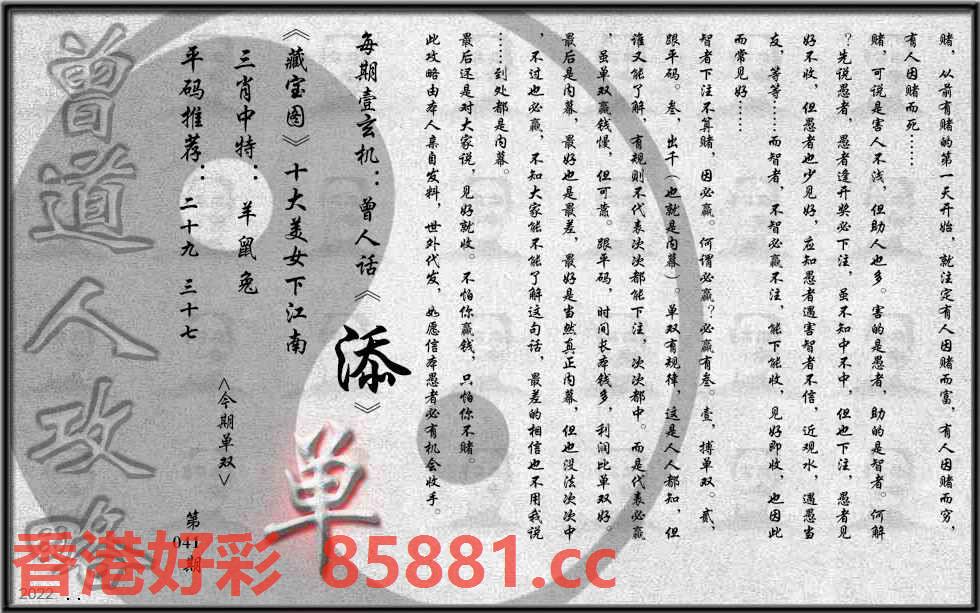 赌，从前有赌的第一天开始，就注定有人因赌而富，有人因赌而穷，
有人因赌而死……
赌，可说是害人不浅，但助人也多。害的是愚者，助的是智者。何解
？先说愚者，愚者逢开奖必下注，虽不知中不中，但也下注，愚者见
好不收，但愚者也少见好，应知愚者遇害智者不信，近观水，遇愚当
友，等等……而智者，不智必赢不注，能下能收，见好即收，也因此
而常见好……
智者下注不算赌，因必赢。何谓必赢？必赢有叁。壹，搏单双。贰，
跟平码。叁，出千（也就是内幕）。单双有规律，这是人人都知，但
谁又能了解，有规则不代表次次都能下注，次次都中。而是代表必赢
，虽单双赢钱慢，但可靠。跟平码，时间长本钱多，利润比单双好。
最后是内幕，最好也是最差，最好是当然真正内幕，但也没法次次中
，不过也必赢，不知大家能不能了解这句话，最差的相信也不用我说
……到处都是内幕。
最后还是对大家说，见好就收。不怕你赢钱，只怕你不赌。
此攻略由本人亲自发料，世外代发，如愿信本愚者必有机会收手。
每期壹玄机：曾人话《添》
《藏宝图》十大美女下江南
三肖中特：羊鼠兔
平码推荐：二十九 三十七
<今期单双>
单
第
041
期
曾道人攻略
香港好彩 85881.cc
2022